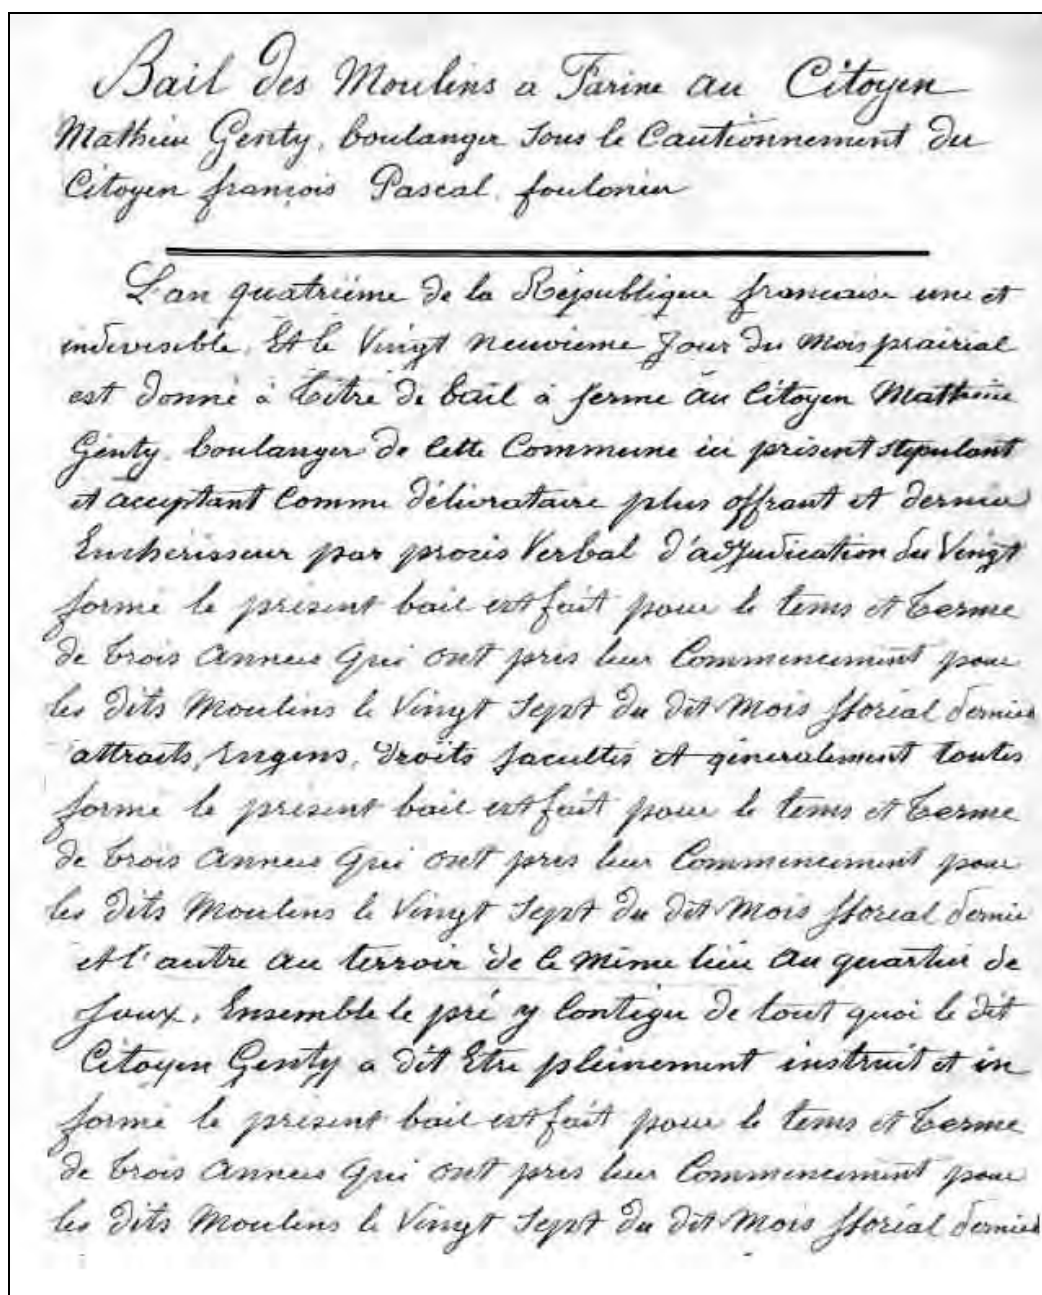 Bail des Moulins a Farine au Citoyen
Mathieu Genty, boulanger sous le Cautionnement du
Citoyen françois Pascal, foulonier
L'an quatriéme de la République francaise une et
indevisible, Et le Vingt neuvieme Jour du Mois prairial
est donné à titre de bail à ferme au Citoyen Mathieu
Genty, boulanger de Cette Commune ici présent stipulant
et acceptant Comme délivrataire plus offrant et dernier
Encherisseur par procés Verbal d'adjudication du Vingt
formé le présent bail est fait pour le tems et terme
de trois années qui ont pris leur Commencement pour
les dits Moulins le Vingt Sept du dit Mois floréal dernier
attraits, Engens, droits facultés et géneralement toutes
formé le présent bail est fait pour le tems et terme
de trois années qui ont pris leur Commencement pour
les dits Moulins le Vingt Sept du dit Mois floréal dernie
et l'autre au terroir de ce même lieu au quartier de
faux, Ensemble le pré y Contigu de tout quoi le dit
Citoyen Genty a dit Etre pleinement instruit et in
formé le présent bail est fait pour le tems et terme
de trois années qui ont pris leur Commencement pour
les dits Moulins le Vingt Sept du dit Mois floréal dernier